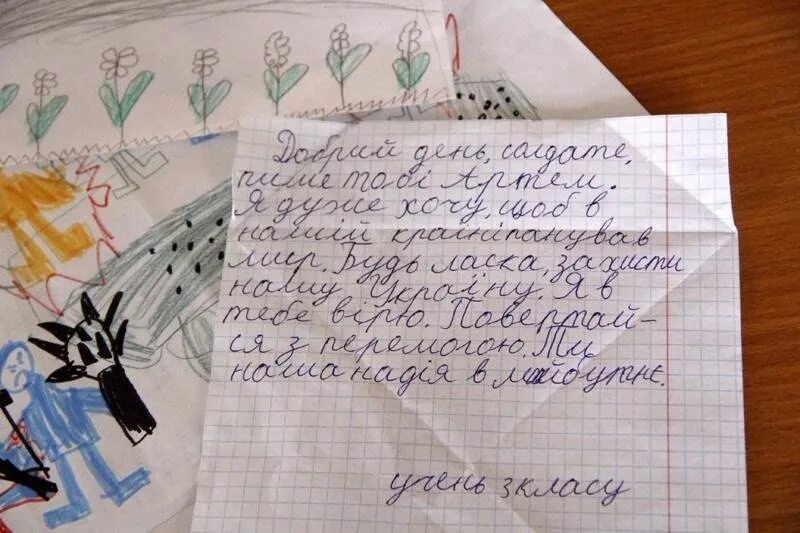 Добрий день, солдате,
пише тобі Артем.
Я дуже хочу, щоб в
нашій країні панував
мир. Будь ласка, захисти
нашу Україну. Я в
тебе вірю. Повертай-
ся з перемогою. Ти
наша надія в майбутнє.
учень 3 класу